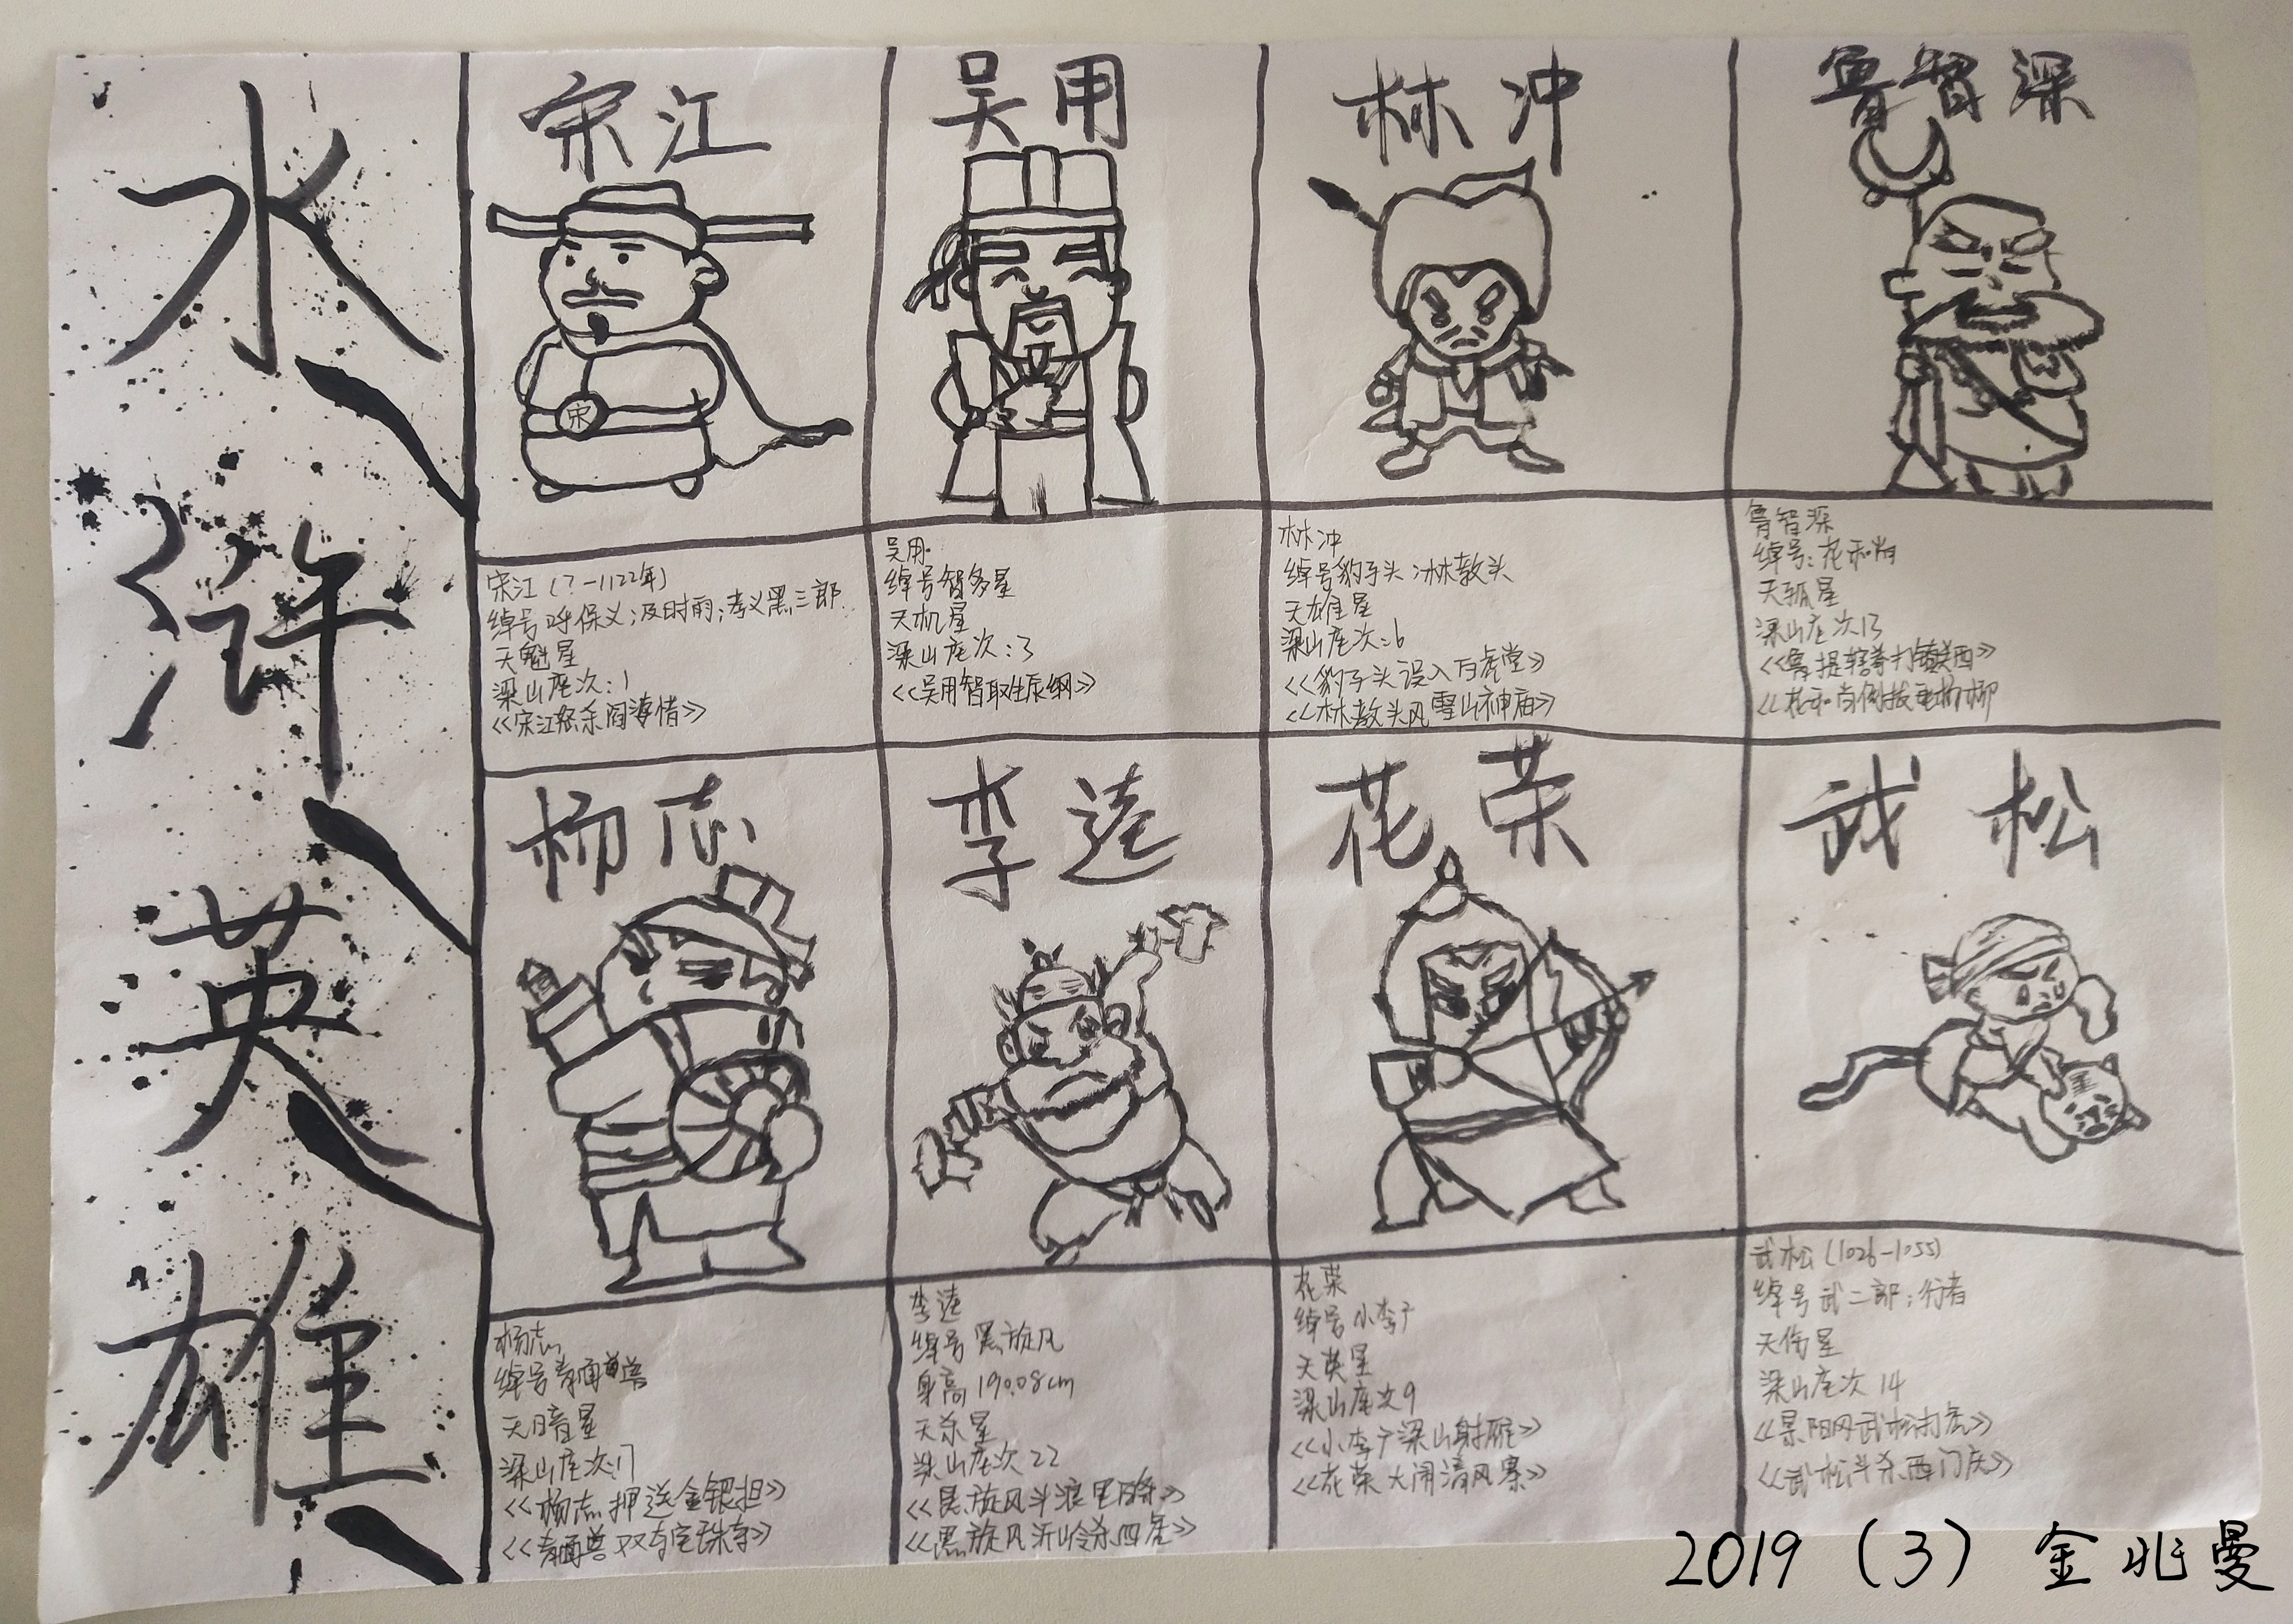 水浒英雄
宋江
宋
宋江(?-1122年)
绰号呼保义;及时雨;孝义黑三郎
天魁星
梁山座次:1
<<宋江怒杀阎婆惜>>
吴用
吴用
绰号智多星
天机星
梁山座次:3
<<吴用智取生辰纲>>
林冲
林冲
绰号豹子头;林教头
天雄星
梁山座次:6
<<豹子头误入白虎堂>>
<<林教头风雪山神庙>>
鲁智深
鲁智深
绰号:花和尚
天孤星
梁山座次13
<<鲁提辖拳打镇关西>>
<<花和尚倒拔垂杨柳
杨志
杨志
绰号青面兽
天暗星
梁山座次:17
<<杨志押送金银担>>
<<青面兽双夺宝珠寺>>
李逵
李逵
绰号黑旋风
身高190.08cm
天杀星
梁山座次22
<<黑旋风斗浪里白条>>
<<黑旋风沂岭杀四虎>>
花荣
花荣
绰号小李广
天英星
梁山座次9
<<小李广梁山射雁>>
<<花荣大闹清风寨>>
武松
武松(1026-1055)
绰号武二郎;行者
天伤星
梁山座次14
<<景阳冈武松打虎>>
<<武松斗杀西门庆>>
2019(3)金兆曼